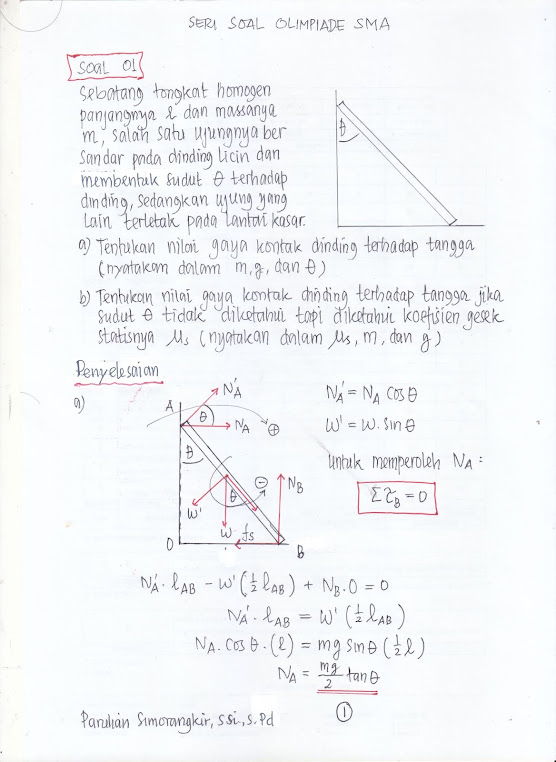 SERI SOAL OLIMPIADE SMA
SOAL 01
Sebatang tongkat homogen
panjangnya l dan massanya
m, salah satu ujungnya ber
sandar pada dinding licin dan
membentuk sudut θ terhadap
dinding, sedangkan ujung yang
lain terletak pada lantai kasar.
θ
a) Tentukan nilai gaya kontak dinding terhadap tangga
(nyatakan dalam m, g, dan θ)
b) Tentukan nilai gaya kontak dinding terhadap tangga jika
sudut θ tidak diketahui tapi diketahui koefisien gesek
statisnya μs (nyatakan dalam μs, m, dan g)
Penyelesaian
a)
A
N'A
θ
NA
⊕
θ
⊖
NB
θ
w'
w
fs
O
B
N'A = NA cos θ
W' = W. sin θ
Untuk memperoleh NA :
ΣτB = 0
N'A. lAB - W' (½ lAB) + NB. 0 = 0
N'A. lAB = W' (½ lAB)
NA. cos θ. (l) = mg sin θ (½ l)
NA = mg/2 tan θ
1
Parulian Simorangkir, S.Si., S.Pd